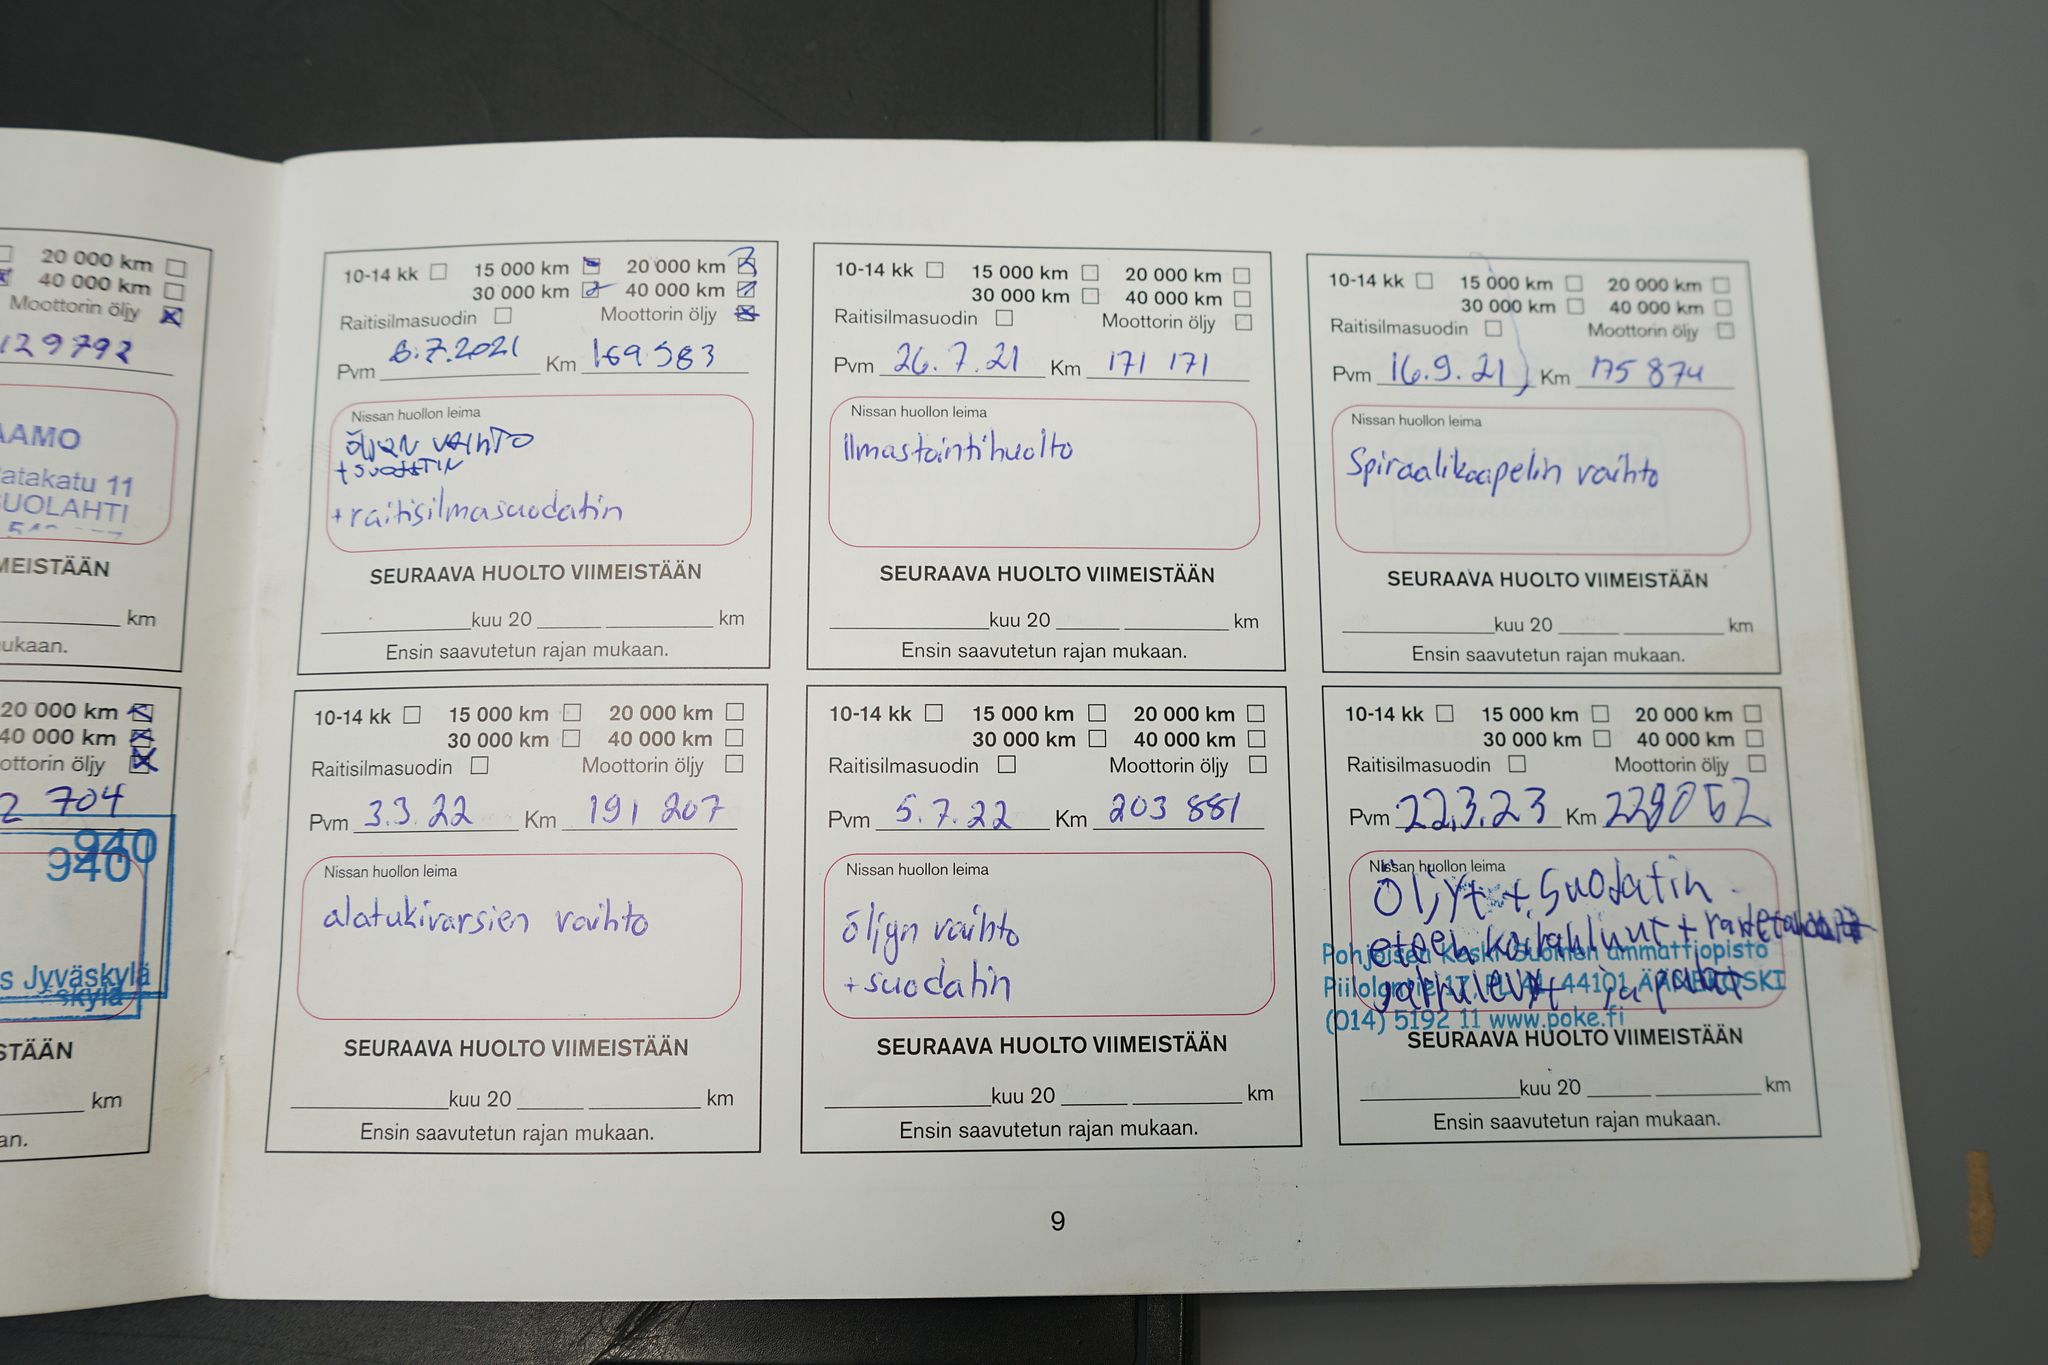 20 000 km
40 000 km
Moottorin öljy
129792
AAMO
atakatu 11
SUOLAHTI
MEISTÄÄN
km
ukaan.
20 000 km
40 000 km
ottorin öljy
2 704
940
940
s Jyväskylä
skylä
STÄÄN
km
an.
10-14 kk 15 000 km 20 000 km
30 000 km 40 000 km
Raitisilmasuodin Moottorin öljy
Pvm 6.7.2021 Km 169 583
Nissan huollon leima
ÖLJYN VAIHTO
+ SUODATIN
+ raitisilmasuodatin
SEURAAVA HUOLTO VIIMEISTÄÄN
kuu 20 km
Ensin saavutetun rajan mukaan.
10-14 kk 15 000 km 20 000 km
30 000 km 40 000 km
Raitisilmasuodin Moottorin öljy
Pvm 26.7.21 Km 171 171
Nissan huollon leima
Ilmastointihuolto
SEURAAVA HUOLTO VIIMEISTÄÄN
kuu 20 km
Ensin saavutetun rajan mukaan.
10-14 kk 15 000 km 20 000 km
30 000 km 40 000 km
Raitisilmasuodin Moottorin öljy
Pvm 16.9.21 Km 175 874
Nissan huollon leima
Spiraalikaapelin vaihto
SEURAAVA HUOLTO VIIMEISTÄÄN
kuu 20 km
Ensin saavutetun rajan mukaan.
10-14 kk 15 000 km 20 000 km
30 000 km 40 000 km
Raitisilmasuodin Moottorin öljy
Pvm 3.3.22 Km 191 207
Nissan huollon leima
alatukivarsien vaihto
SEURAAVA HUOLTO VIIMEISTÄÄN
kuu 20 km
Ensin saavutetun rajan mukaan.
10-14 kk 15 000 km 20 000 km
30 000 km 40 000 km
Raitisilmasuodin Moottorin öljy
Pvm 5.7.22 Km 203 881
Nissan huollon leima
öljyn vaihto
+ suodatin
SEURAAVA HUOLTO VIIMEISTÄÄN
kuu 20 km
Ensin saavutetun rajan mukaan.
10-14 kk 15 000 km 20 000 km
30 000 km 40 000 km
Raitisilmasuodin Moottorin öljy
Pvm 22.3.23 Km
Nissan huollon leima
Öljyt + suodatin
eteen +
Pohjoisen Keski-Suomen ammattiopisto
jarrulevyt ja palat
Piilolantie 17, PL 44101 ÄÄNEKOSKI
(014) 5192 11 www.poke.fi
SEURAAVA HUOLTO VIIMEISTÄÄN
kuu 20 km
Ensin saavutetun rajan mukaan.
9